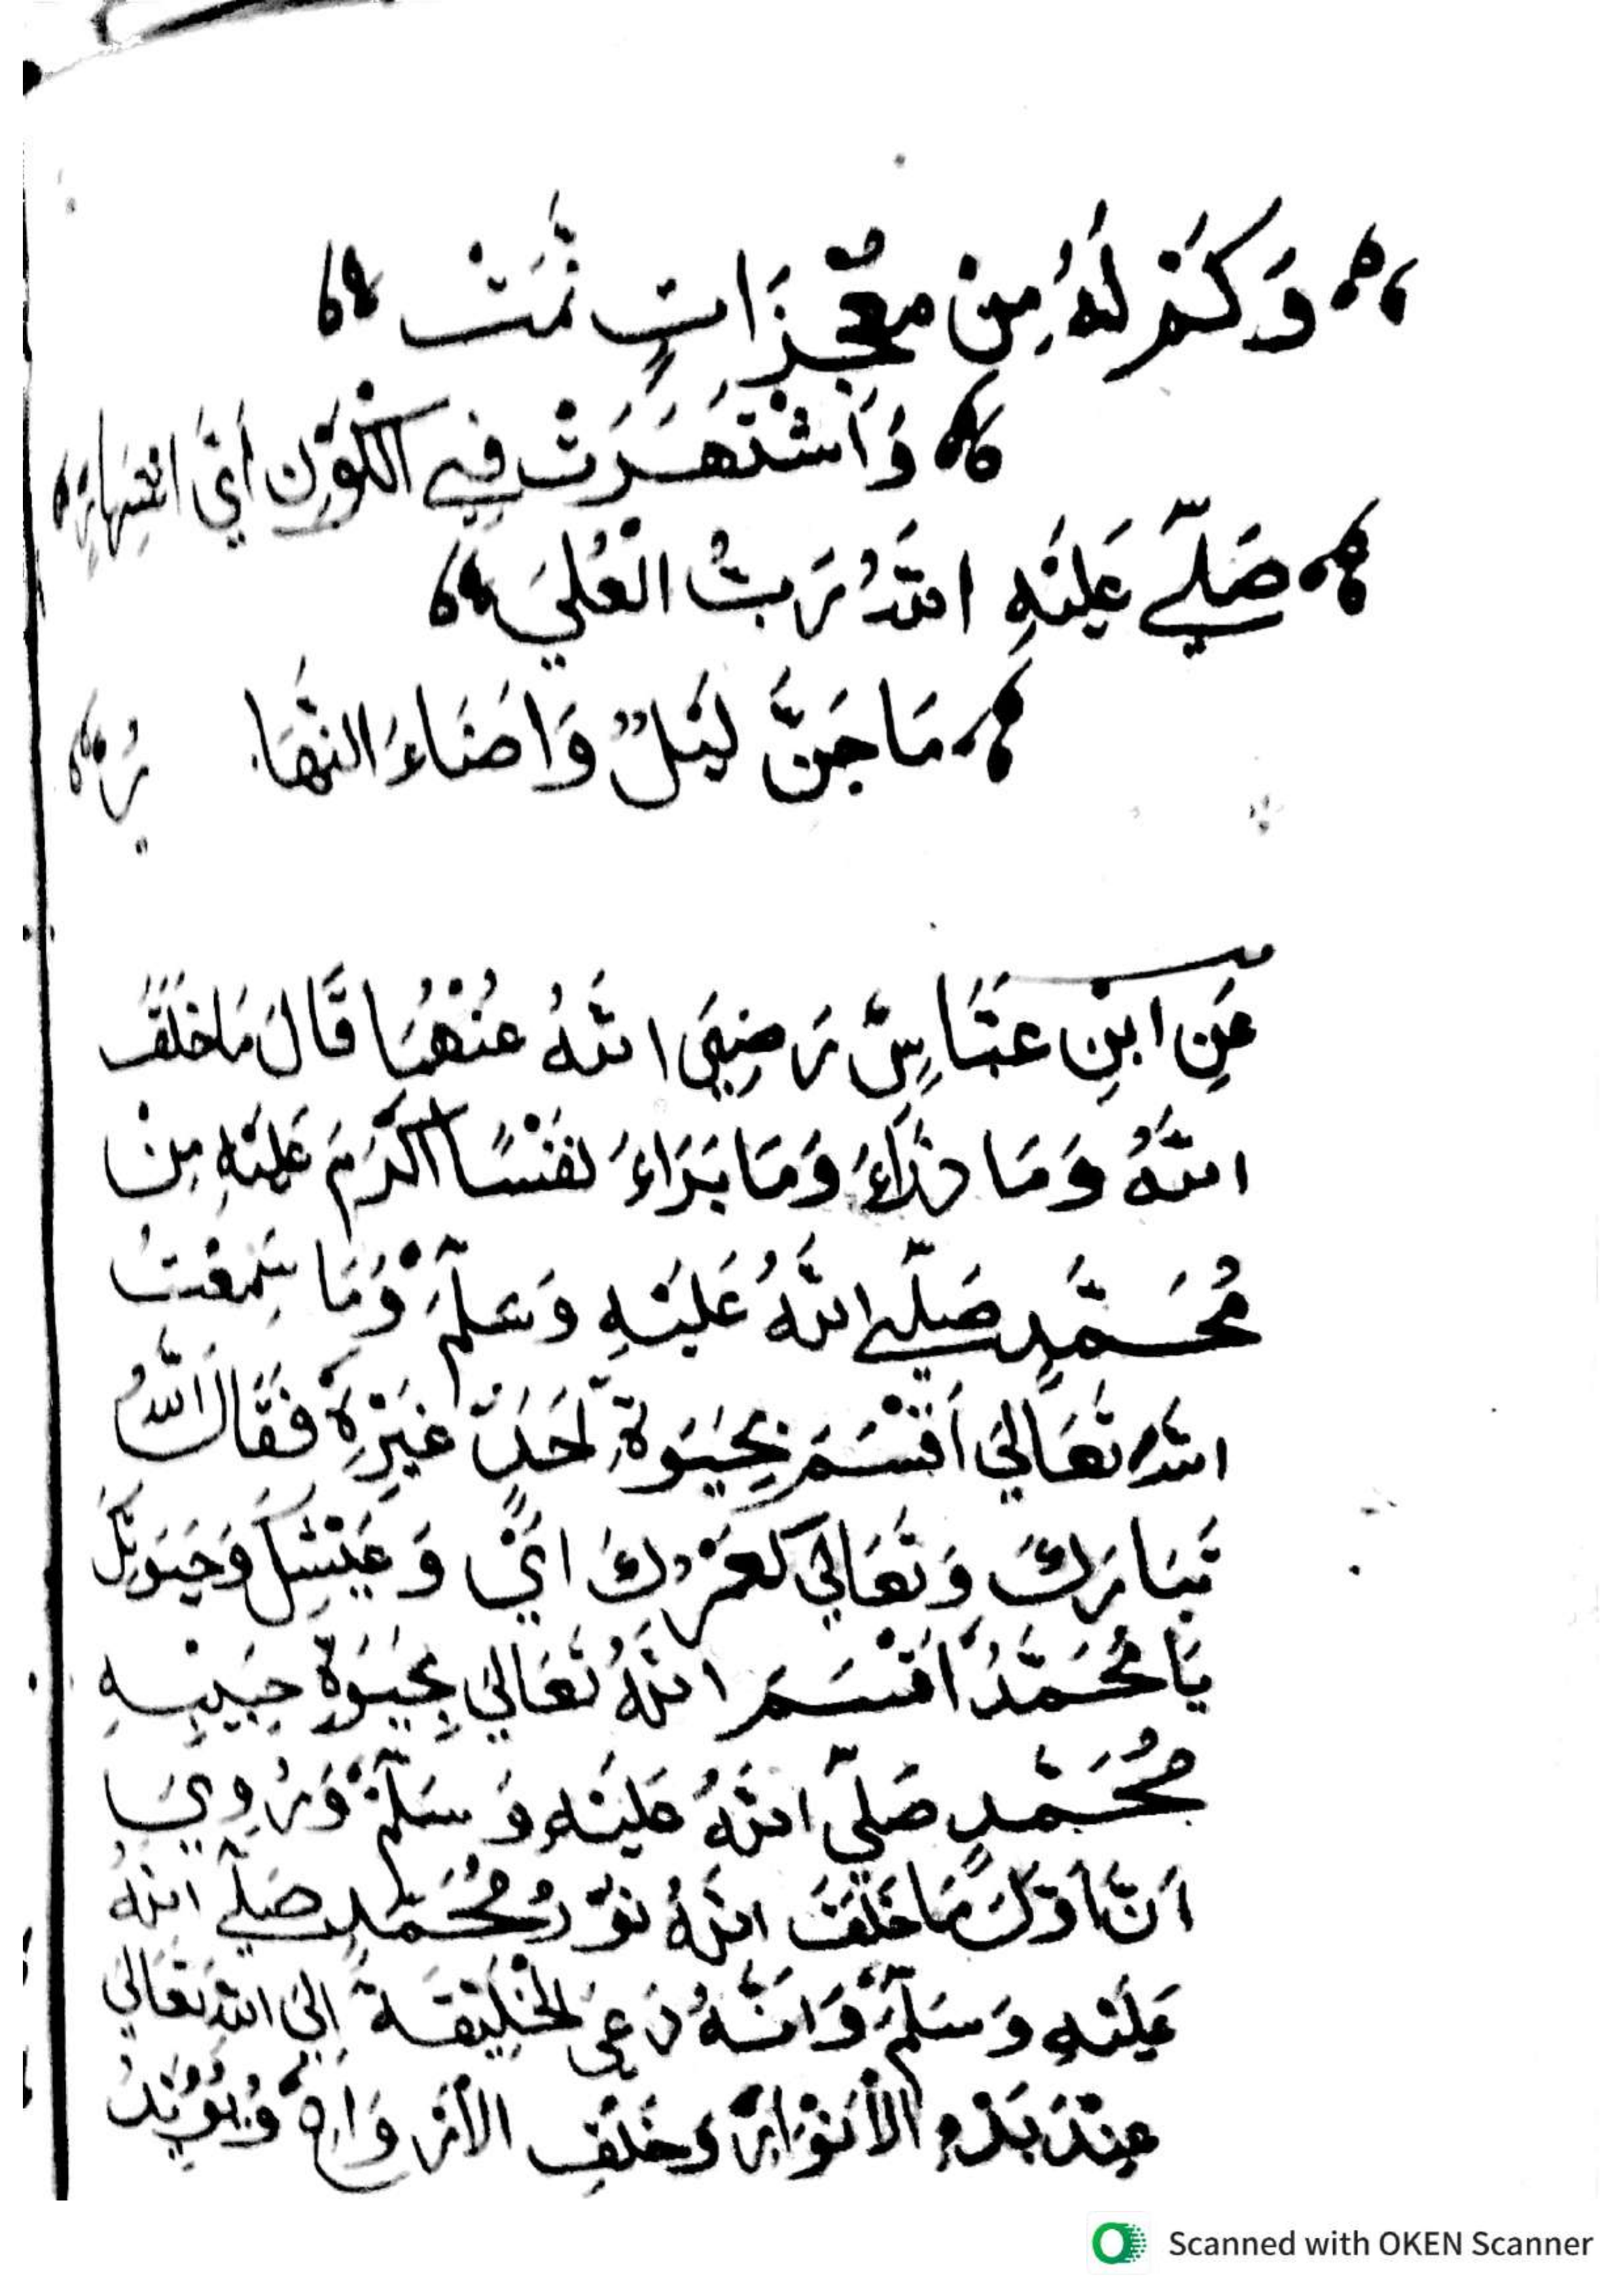 وَكَمْ لَهُ مِنْ مُعْجِزَاتٍ نَّمَتْ
وَاَشْتَهَرَتْ فِي الْكَوْنِ أَيَّ اشْتِهَارْ
صَلَّى عَلَيْهِ اللَّهُ رَبُّ الْعُلَى
مَا جَنَّ لَيْلٌ وَاَضَاءَ النَّهَارُ
عَنِ ابْنِ عَبَّاسٍ رَضِيَ اللَّهُ عَنْهُمَا قَالَ مَا خَلَقَ
اللَّهُ وَمَا ذَرَاءَ وَمَا بَرَاءَ نَفْسًا اَكْرَمَ عَلَيْهِ مِنْ
مُحَمَّدٍ صَلَّى اللَّهُ عَلَيْهِ وَسَلَّمَ وَمَا سَمِعْتُ
اللَّهَ تَعَالَى اَقْسَمَ بِحَيَوةِ اَحَدٍ غَيْرِهِ فَقَالَ اللَّهُ
تَبَارَكَ وَتَعَالَى لَعَمْرُكَ اَيْ وَعَيْشِكَ وَحَيَوتِكَ
يَا مُحَمَّدُ اَقْسَمَ اللَّهُ تَعَالَى بِحَيَوةِ حَبِيبِهِ
مُحَمَّدٍ صَلَّى اللَّهُ عَلَيْهِ وَسَلَّمَ وَرُوِيَ
اَنَّ اَوَّلَ مَا خَلَقَ اللَّهُ نُوْرُ مُحَمَّدٍ صَلَّى اللَّهُ
عَلَيْهِ وَسَلَّمَ وَاَنَّهُ دَعَى الْخَلِيْقَةَ اِلَى اللَّهِ تَعَالَى
عِنْدَ بَدْءِ الْاَنْوَارِ وَخَلْقِ الْاَرْوَاحِ وَيُؤَيِّدُ
Scanned with OKEN Scanner